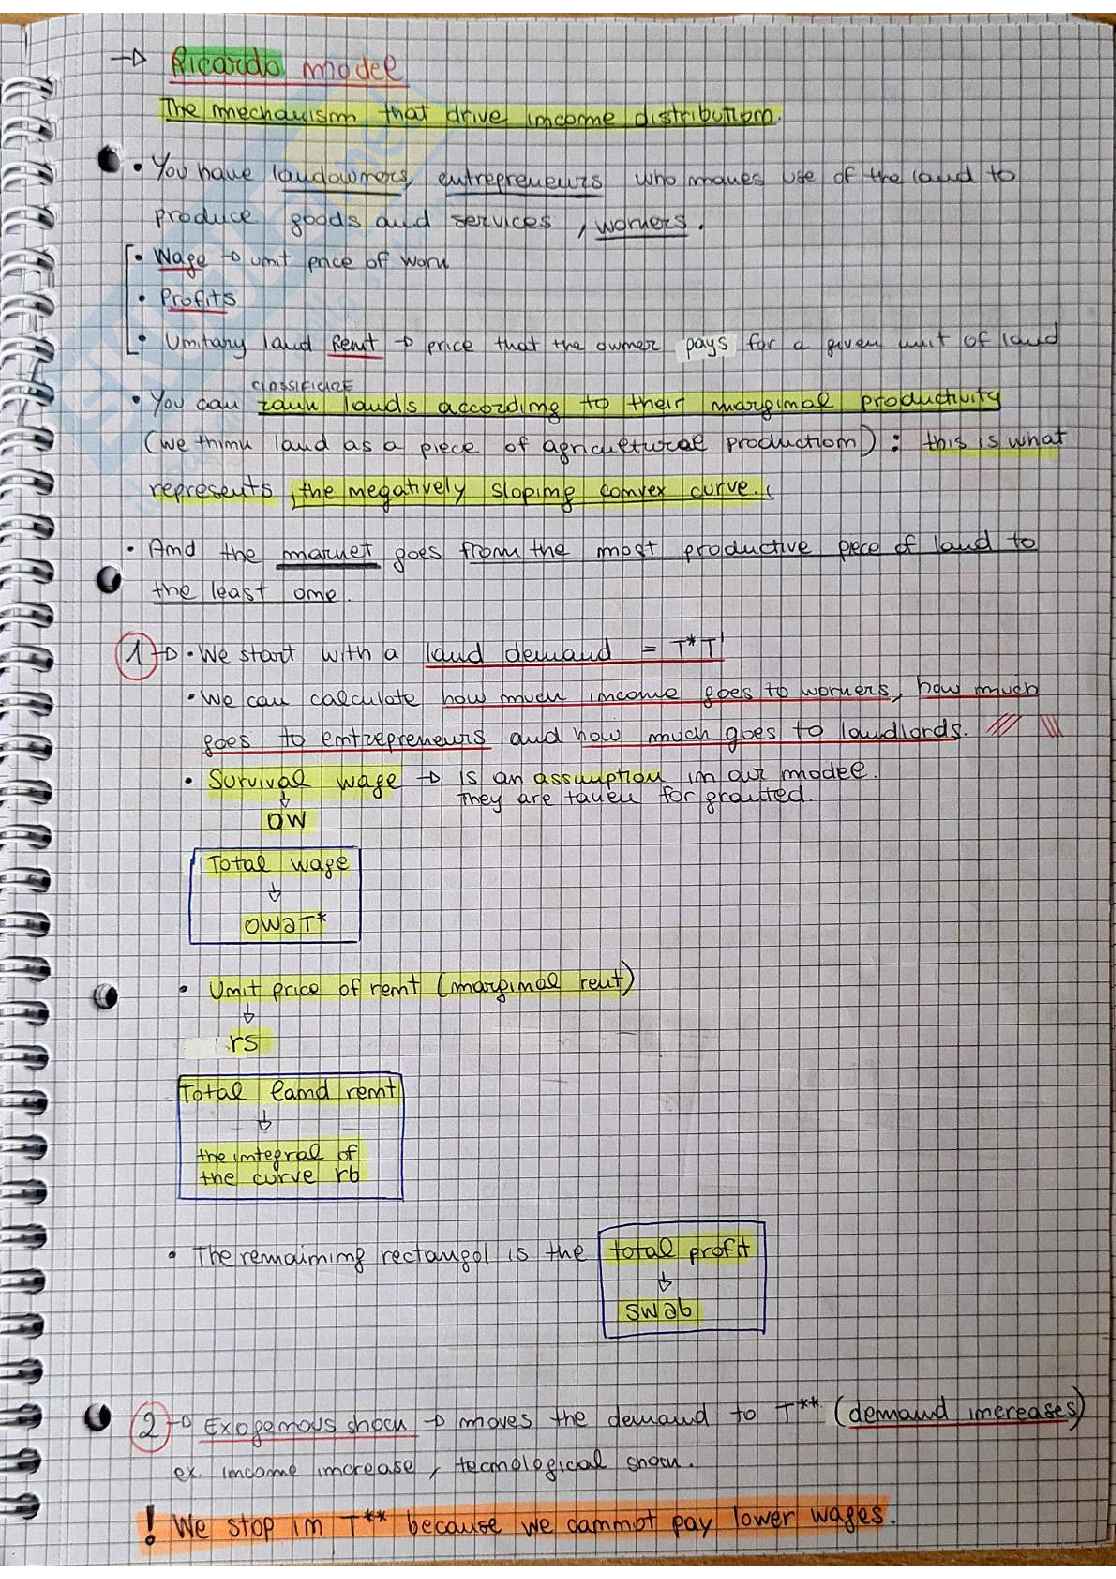 → Ricardo model
The mechanism that drive income distribution.
• You have landowners, entrepreneurs who makes use of the land to
produce goods and services, workers.
• Wage → unit price of work
• Profits
• Unitary land Rent → price that the owner pays for a given unit of land
CLASSIFICARE
• You can rank lands according to their marginal productivity
(we think land as a piece of agricultural production): this is what
represents the negatively sloping convex curve.
• And the market goes from the most productive piece of land to
the least one.
1 → • We start with a land demand = T*T'
• We can calculate how much income goes to workers, how much
goes to entrepreneurs and how much goes to landlords.
• Survival wage → is an assumption in our model.
They are taken for grantted.
↓
OW
Total wage
↓
OWaT*
• Unit price of rent (marginal rent)
↓
rs
Total land rent
↓
the integral of
the curve rb
• The remaining rectangol is the total profit
↓
swab
2 → Exogenous shock → moves the demand to T** (demand increases)
ex. income increase, tecnological shock.
! We stop in T** because we cannot pay lower wages.